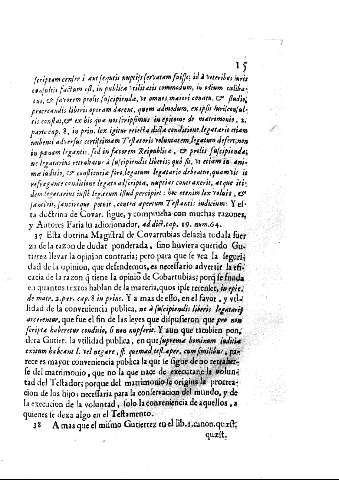 15
scriptam censeri aut sequutis nuptijs servatam fuisse; id à veteribus iuris
consultis factum est, in publicæ utilitatis commodum, in odium caliba-
tus, & favorem prolis suscipiendæ, ut omnes maiori conatu, & studio,
procreandis liberis operam darent, quem admodum, ex ipsis iurisconsul-
tis constat, & ex his quæ nos scripsimus in epitome de matrimonio, 2.
parte cap. 8, in prin. lex igitur reiecta dicta conditione, legatariis etiam
nubenti adversus certissimam Testatoris voluntatem, legatum defert, non
in pænam legantis, sed in favorem Reipublicæ, & prolis suscipiendæ;
ne legatarius retrahatur à suscipiendis liberis; quò fit, ut etiam in ani-
mæ iudicio, & conscientiæ foro, legatum legatario debeatur, quamvis is
refragante conditione legato adscripta, nuptias contraxerit, atque iti-
dem legatarius iustè legatum istud percipiet: hoc etenim lex voluit, &
sanxit, sanxitque iustè, contra apertum Testantis iudicium: Y es-
ta doctrina de Covar. sigue, y comprueba con muchas razones,
y Autores Faria su adicionador, ad dict. cap. 19. num. 64.
37 Esta doctrina Magistral de Covarrubias dexava toda la fuer
za de la razon de dudar ponderada, sino huviera querido Gu-
tierrez llevar la opinion contraria; pero para que se vea la seguri-
dad de la opinion, que defendemos, es necessario advertir la efi-
cacia de la razon q̃ tiene la opinion de Cobarrubias; porq̃ se funda
en quantos textos hablan de la materia, quos ipse recenset, in epit.
de matr. 2. part. cap. 8 in princ. Y a mas de esso, en el favor, y vti-
lidad de la conveniencia publica, ne à suscipiendis liberis legatarij
arcerentur, que fue el fin de las leyes que dispusieron, que pro non
scripta haberetur conditio, si non nupserit. Y aun que tambien pon-
dera Gutier. la vtilidad publica, en que suprema hominum iudicia
exitum habeant l. vel negare, ff. quemad. test. aper. cum similibus, pa-
rece es mayor conveniencia publica la que se sigue de no retraher-
se del matrimonio, que no la que nace de executarse la volun-
tad del Testador; porque del matrimonio se origina la procrea-
cion de los hijos, necessaria para la conservacion del mundo, y de
la execucion de la voluntad, solo la conveniencia de aquellos, a
quienes se dexa algo en el Testamento.
38 A mas que el mismo Gutierrez en el lib. 2. canon. quæst.
quæst.